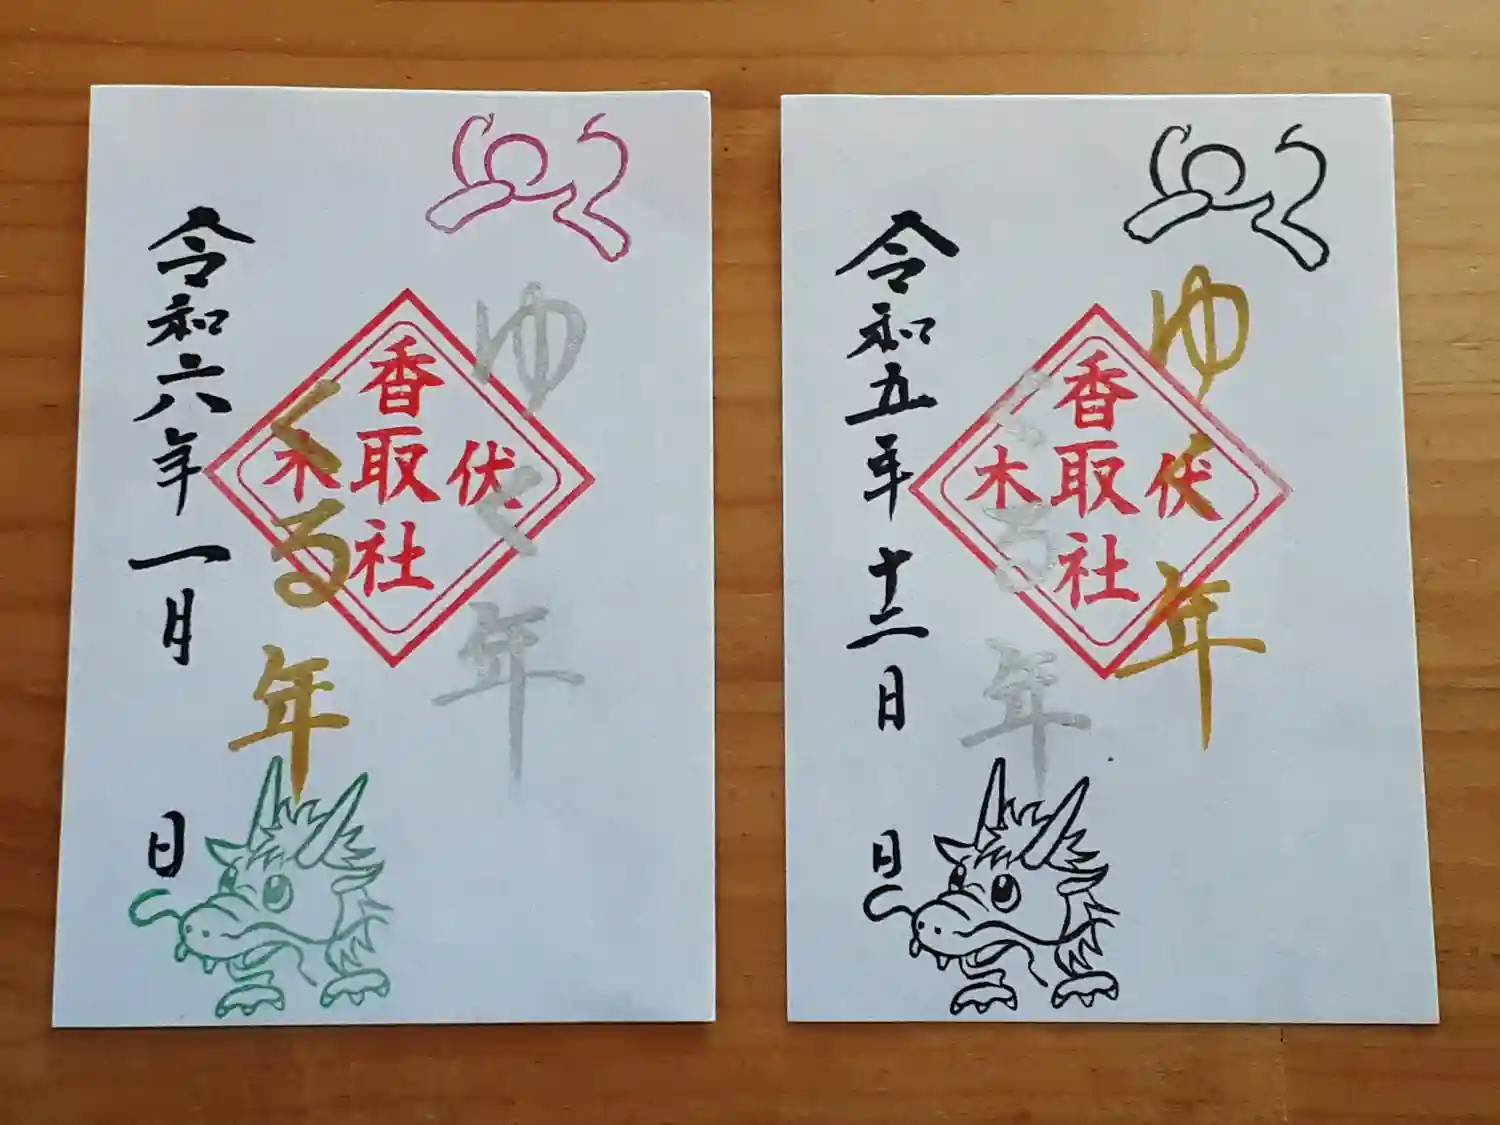 ゆく年
伏木
香取社
くる年
令和六年一月 日
ゆく年
伏木
香取社
くる年
令和五年十二月 日